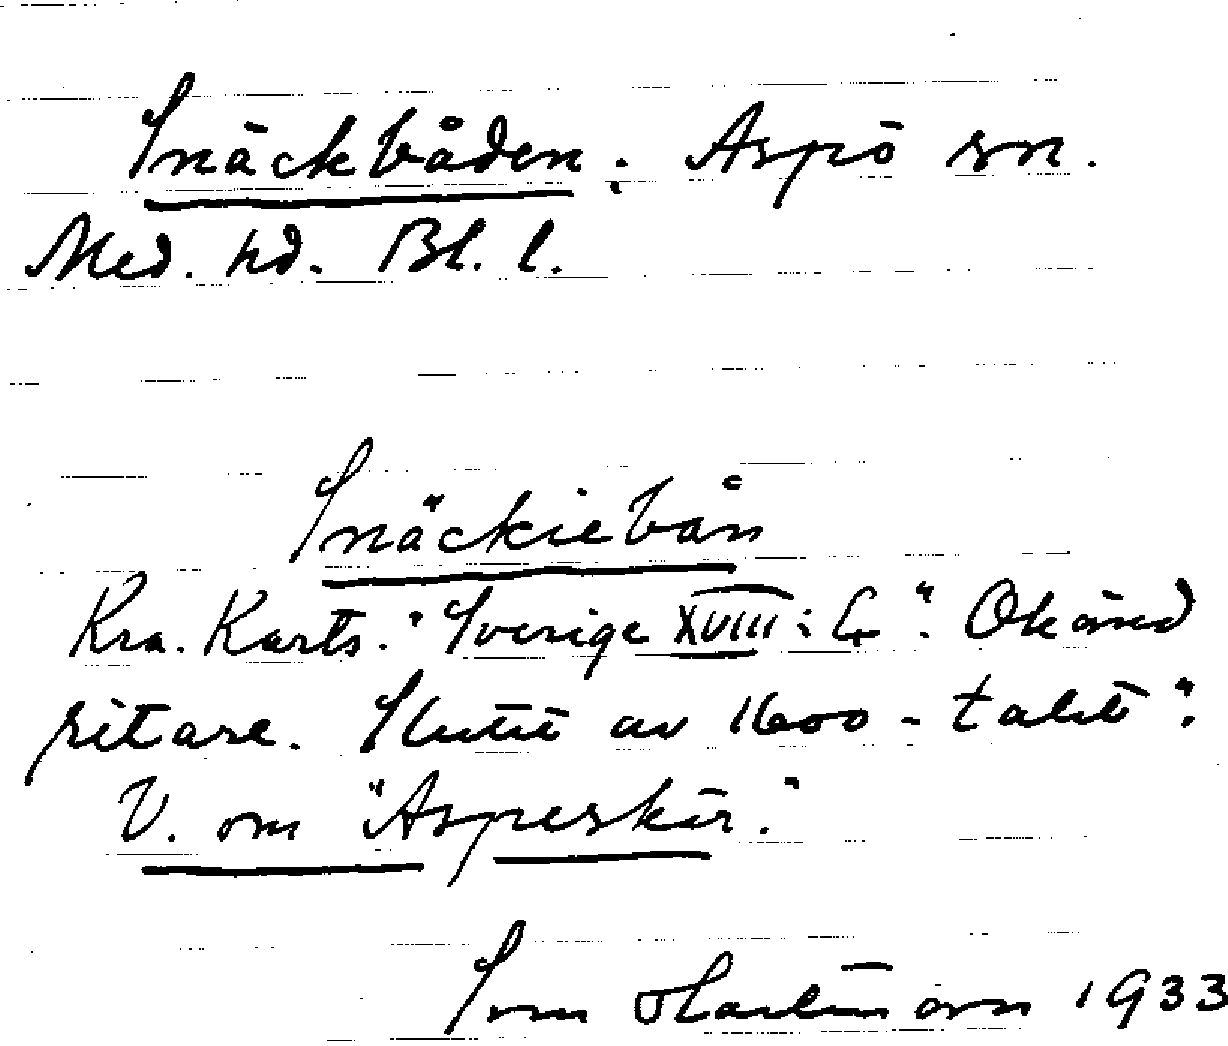 Snäckbåden. Aspö sn.
Med. hd. Bl. l.
Snäckiebån
Kra. Karts. "Sverige XVIII: G". Okänd
ritare. Slutet av 1600-talet".
V. om "Aspeskär."
1933